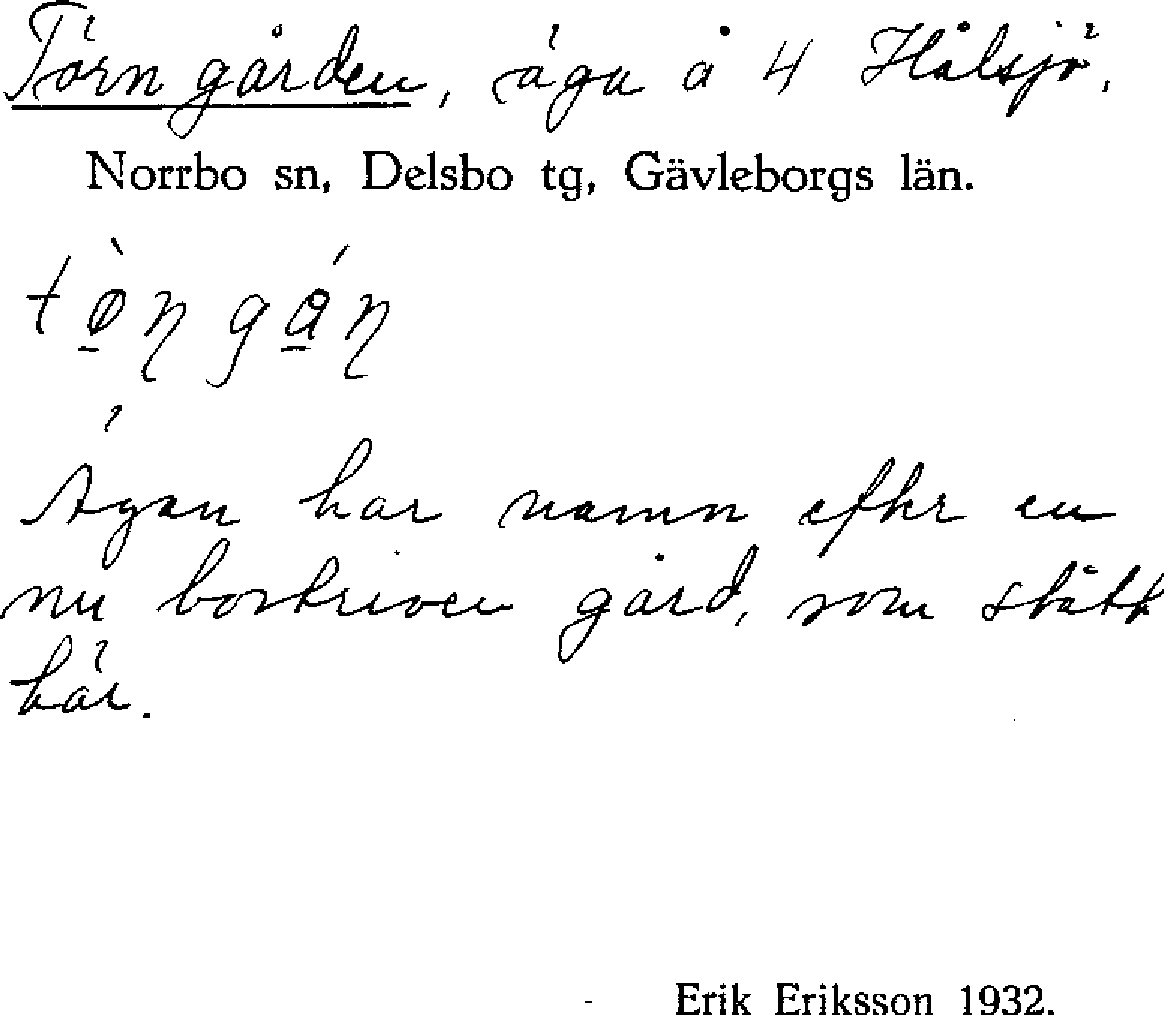 Törngården, äga å 4 Hålsjö,
Norrbo sn, Delsbo tg, Gävleborgs län.
Ägan har namn efter en
nu bortriven gård, som stått
här.
Erik Eriksson 1932.